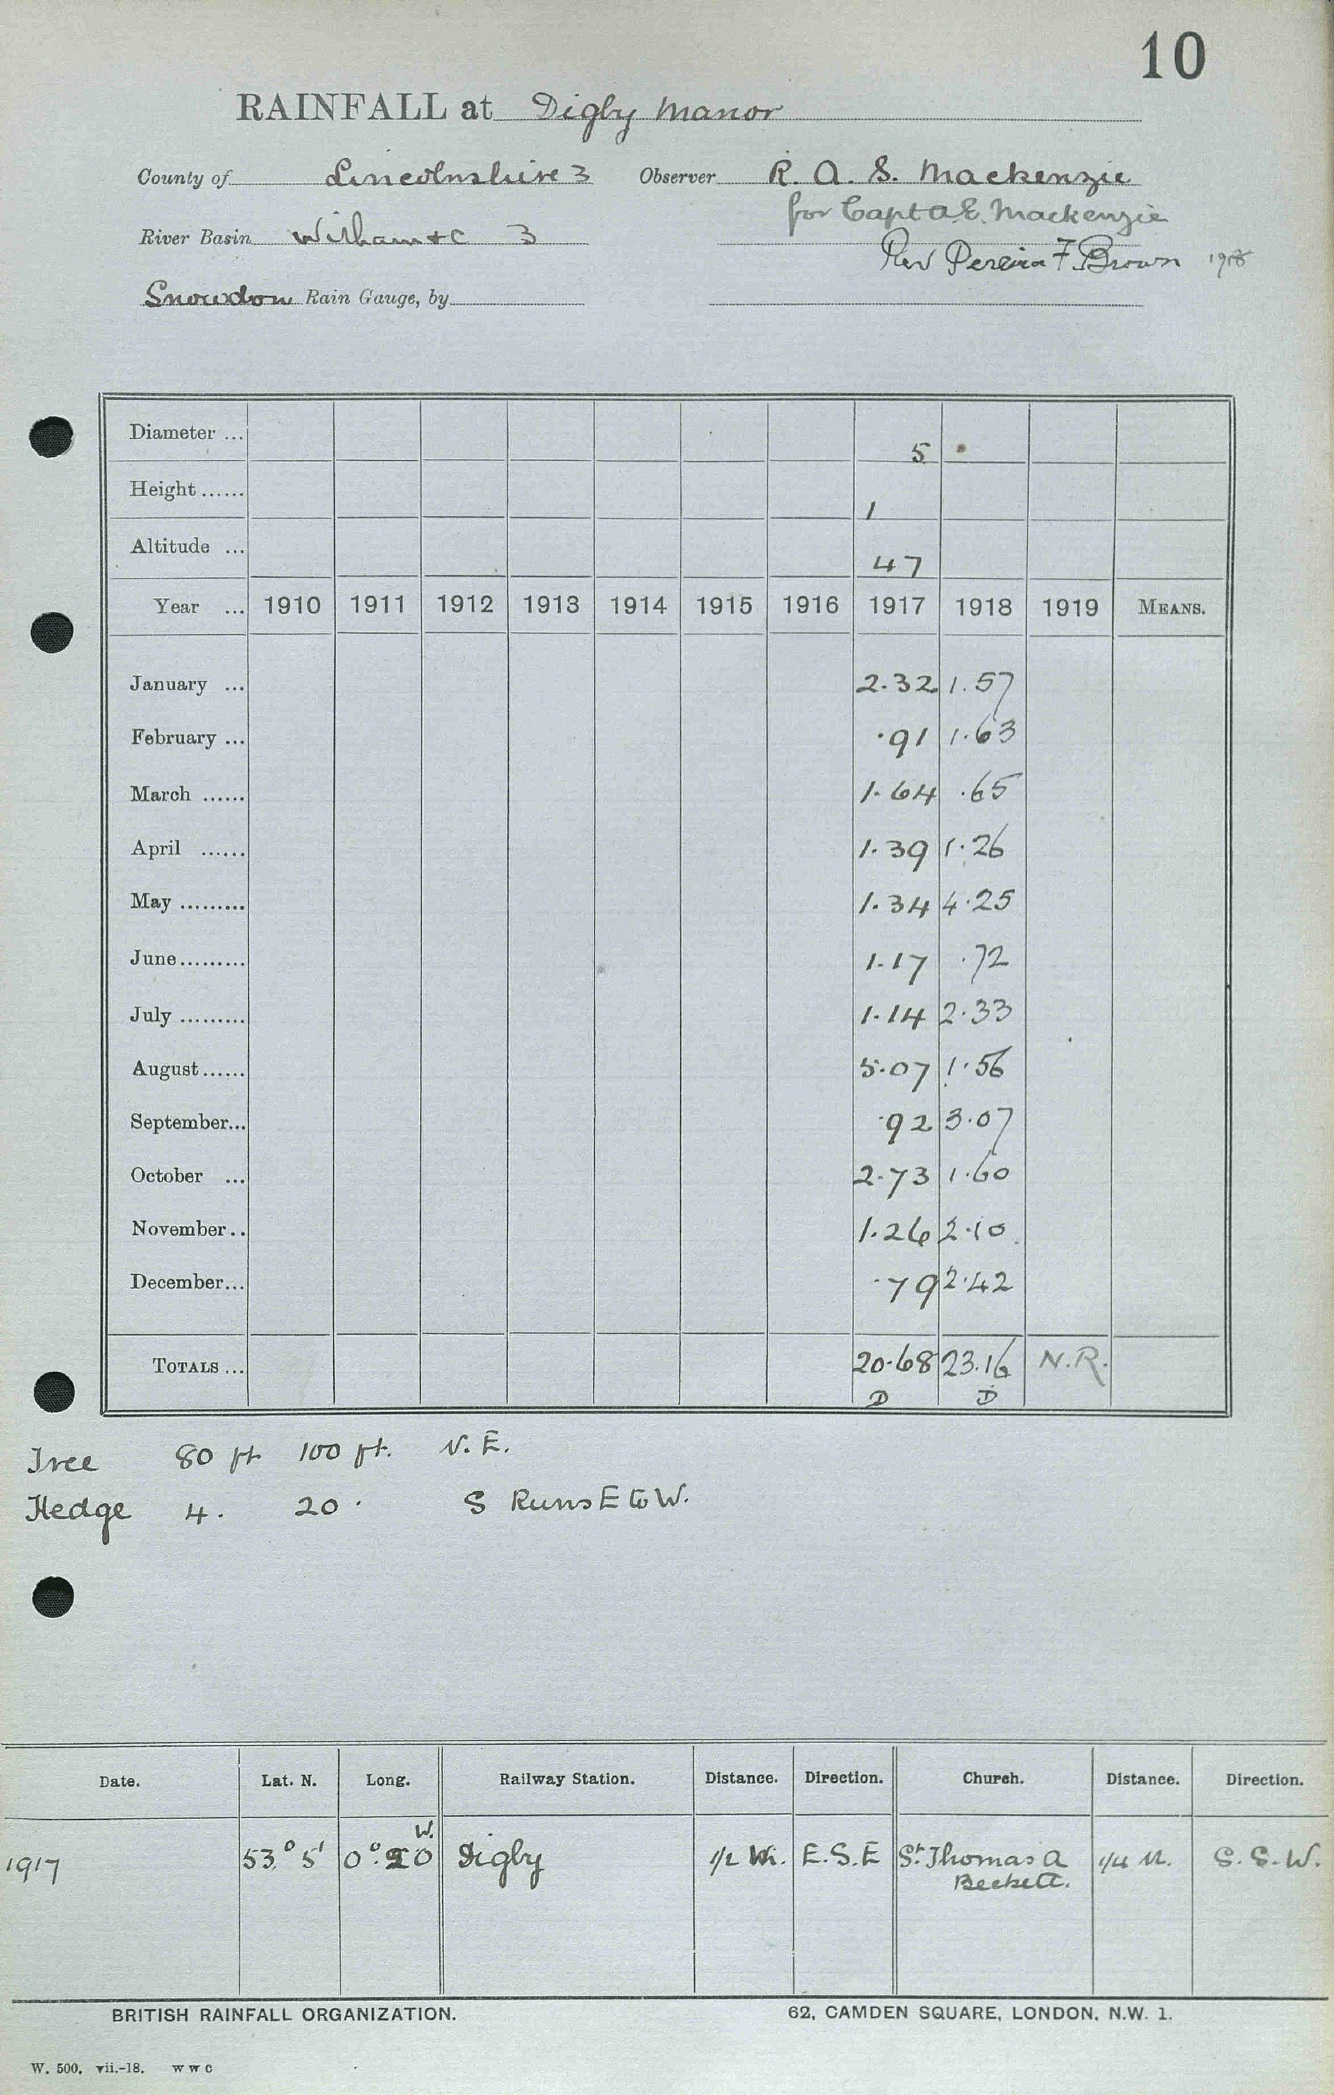 10
RAINFALL at Digby Manor
County of Lincolnshire 3 Observer R. A. S. Mackenzie
for Capt A E. Mackenzie
River Basin Witham &c 3
Rev Pereira F. Brown 1918
Snowdon Rain Gauge, by
Diameter ... 5
Height ...... 1
Altitude ... 47
Year ... 1910 1911 1912 1913 1914 1915 1916 1917 1918 1919 MEANS.
January ... 2.32 1.57
February ... .91 1.63
March ...... 1.64 .65
April ...... 1.39 1.26
May ......... 1.34 4.25
June ......... 1.17 .72
July ......... 1.14 2.33
August ...... 5.07 1.56
September... .92 3.07
October ... 2.73 1.60
November.. 1.26 2.10
December... .79 2.42
TOTALS ... 20.68 23.16 N.R.
D D
Tree 80 ft 100 ft. N.E.
Hedge 4. 20. S Runs E to W.
Date. Lat. N. Long. Railway Station. Distance. Direction. Church. Distance. Direction.
W.
1917 53° 5' 0°.20 Digby 1/2 M. E.S.E St. Thomas A 1/4 M. S.S.W.
Beckett.
BRITISH RAINFALL ORGANIZATION. 62, CAMDEN SQUARE, LONDON, N.W. 1.
W. 500. vii.-18. W W C